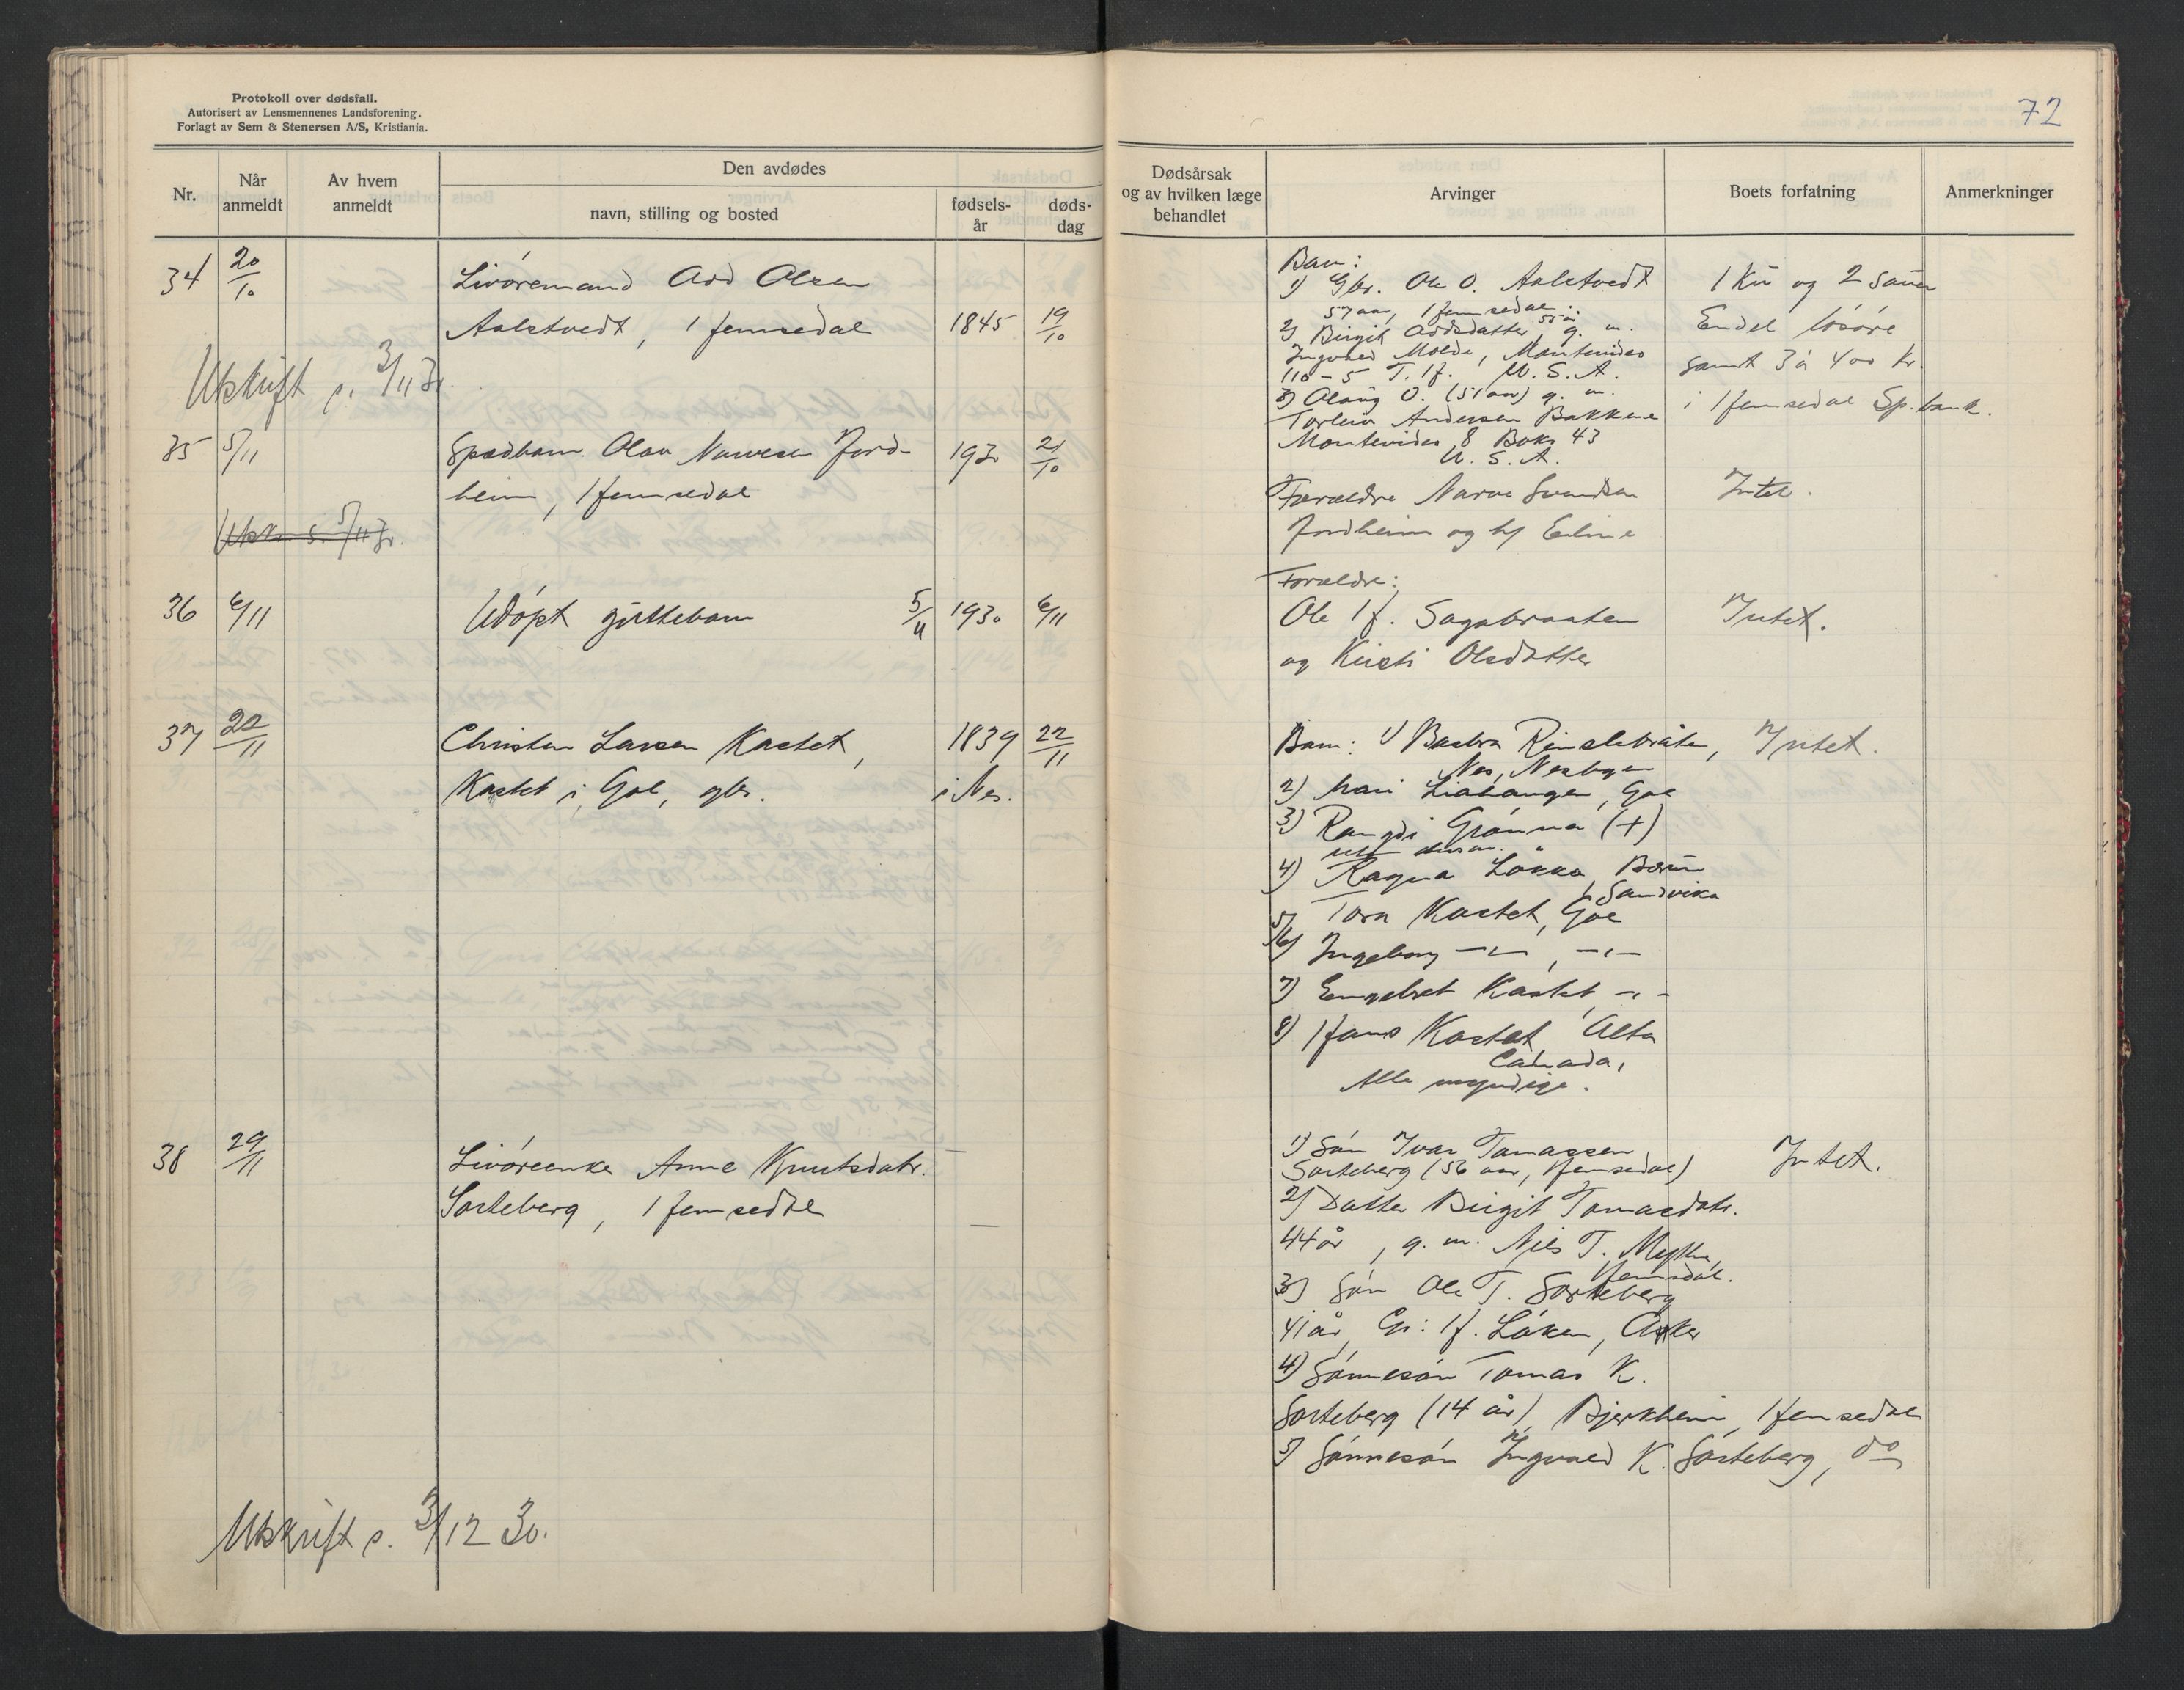 Protokoll over dødsfall.
Autorisert av Lensmennenes Landsforening.
Forlagt av Sem & Stenersen A/S, Kristiania.
72
Nr.
Når anmeldt
Av hvem anmeldt
Den avdødes
navn, stilling og bosted
fødsels-år
døds-dag
Dødsårsak og av hvilken læge behandlet
Arvinger
Boets forfatning
Anmerkninger
34 20/10 Livøremand Odd Olsen
Aalstvedt, Hemsedal 1845 19/10
Utskrift s. 3/11 30.
Barn:
1) Gbr. Ole O. Aalstvedt
57 aar, Hemsedal.
2) Birgit Oddsdatter, g. m.
Ingvald Molde, Montevideo
110-5 T. H. U.S.A.
3) O. (51 aar) g. m.
Torleiv Andersen Bakkene
Montevideo, 8 Boks 43
U.S.A.
1 Ku og 2 sauer
Endel løsøre
samt 3 à 400 kr.
i Hemsedal Sp.bank.
35 5/11 Spædbarn Olav Narvesen Jord-
heim, Hemsedal 1930 21/10
Utskr. s. 5/11 30.
Forældre Narve Svendsen
Jordheim og h/ Eline
Intet.
36 6/11 Udøpt guttebarn 5/11 1930 6/11
Forældre:
Ole H. Sagabraaten
og Kirsti Olsdatter
Intet.
37 22/11 Christen Larsen Kastet, 1839 22/11
Kastet i Gol, gbr. i Nes.
Barn: 1) Barbra Rimslebråten, Intet.
Nes, Nesbyen
2) Mari Liahaugen, Gol
3) Rangdi Grønna (+)
4) Ragna Løkka, Bærum
Sandvika
5) Tora Kastet, Gol
6) Ingeborg -"-, -"-
7) Engebret Kastet -"-
8) Hans Kastet, Alta
Canada,
Alle myndige.
38 29/11 Livøreenke Anne Knutsdatr. —
Sorteberg, Hemsedal —
1) Søn Ivar Tomassen
Sorteberg (56 aar, Hemsedal)
2) Datter Birgit Tomasdatr.
44 år, g. m. Nils T. Mythe,
Hemsedal.
3) Søn Ole T. Sorteberg
41 år, Gr: H. Løken, Asker
4) Sønnesøn Tomas K.
Sorteberg (14 år), Bjerkheim, Hemsedal
5) Sønnesøn Ingvald K. Sorteberg, do
Intet.
Utskrift s. 3/12 30.